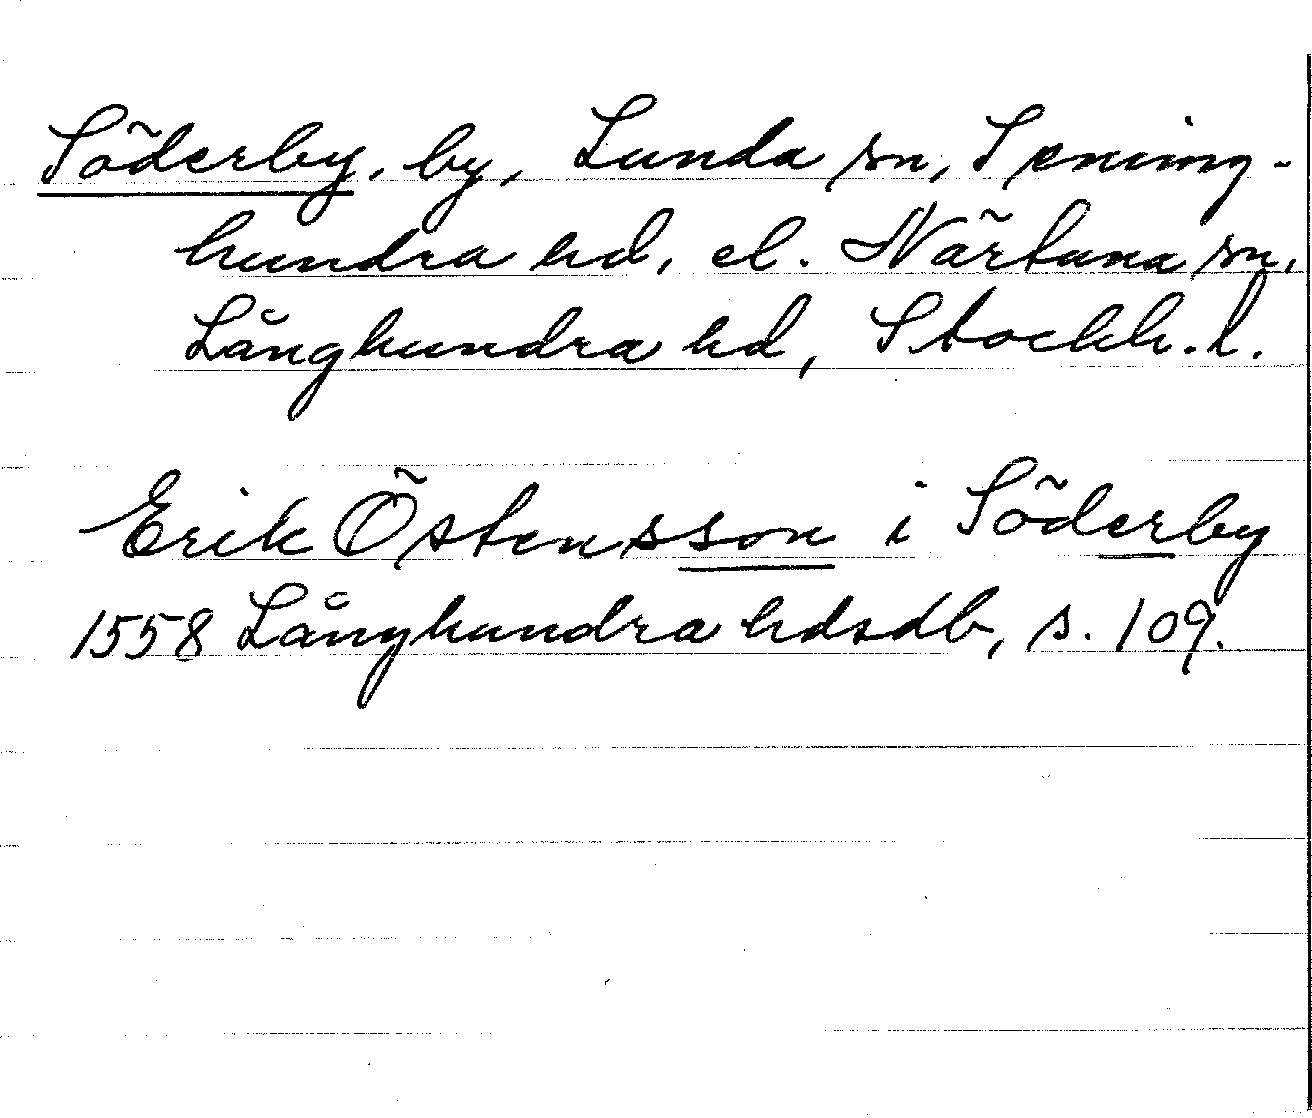 Söderby, by, Lunda sn, Sening-
hundra hd, el. Närtuna sn,
Långhundra hd, Stockh. l.
Erik Östensson i Söderby
1558 Långhundra hdsdb, s. 109.